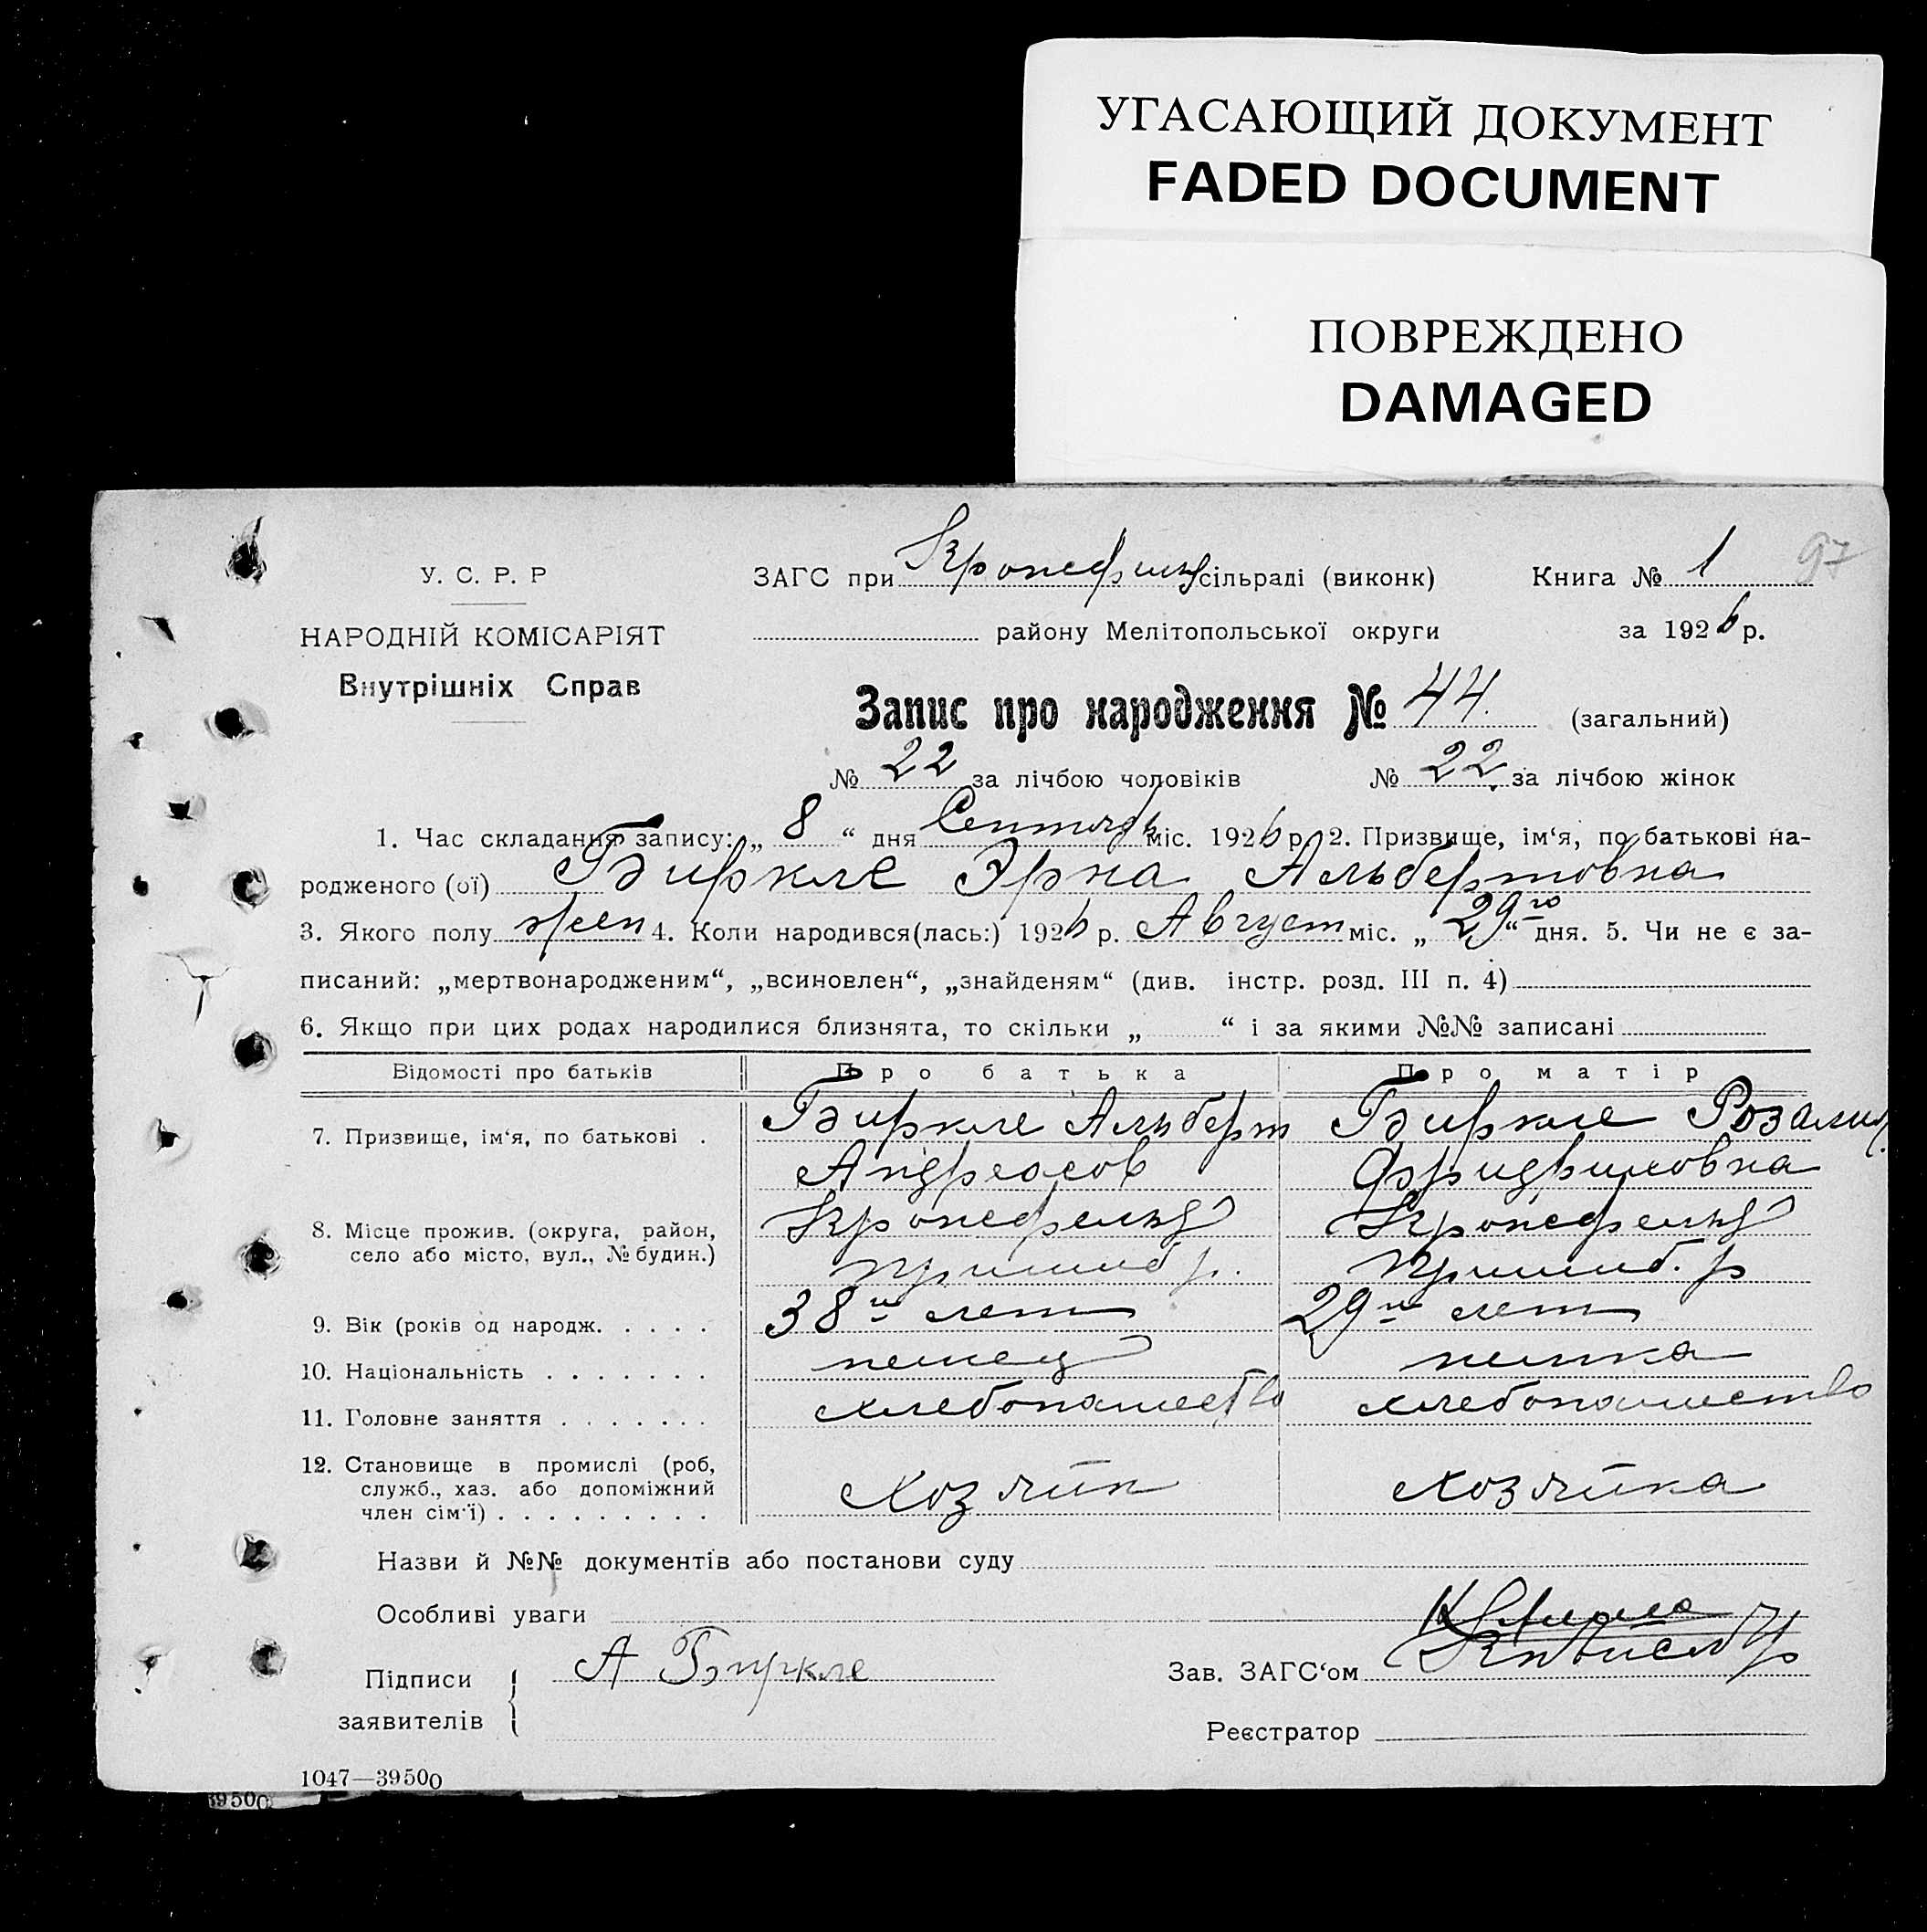 УГАСАЮЩИЙ ДОКУМЕНТ
FADED DOCUMENT
ПОВРЕЖДЕНО
DAMAGED
97
У. С. Р. Р
ЗАГС при Кронсфельд сільраді (виконк) Книга № 1
НАРОДНІЙ КОМІСАРІЯТ
району Мелітопольської округи за 1926 р.
Внутрішніх Справ
Запис про народження № 44 (загальний)
№ 22 за лічбою чоловіків № 22 за лічбою жінок
1. Час складання запису: „ 8 “ дня Сентябрь міс. 1926 р. 2. Призвище, ім‘я, по батькові на-
родженого (ої) Биркле Эрна Альбертовна
3. Якого полу жен 4. Коли народився(лась:) 1926 р. Август міс. „ 29го “ дня. 5. Чи не є за-
писаний: „мертвонародженим“, „всиновлен“, „знайденям“ (див. інстр. розд. III п. 4)
6. Якщо при цих родах народилися близнята, то скільки „ “ і за якими №№ записані
Відомості про батьків Про батька Про матір
7. Призвище, ім‘я, по батькові . Биркле Альберт Биркле Розалия
Андреасов Фридриховна
8. Місце прожив. (округа, район, Кронсфельд Кронсфельд
село або місто, вул., № будин.) Пришиб р. Пришиб. р
9. Вік (років од народж. . . . . 38 лет 29 лет
10. Національність . . . . . . . немец немка
11. Головне заняття . . . . . . . хлебопашество хлебопашество
12. Становище в промислі (роб,
служб., хаз. або допоміжний Хозяин Хозяйка
член сім‘ї) . . . . . . . . .
Назви й №№ документів або постанови суду
Особливі уваги
Підписи А Биркле Зав. ЗАГС‘ом
заявителів
Реєстратор
1047—39500
39500